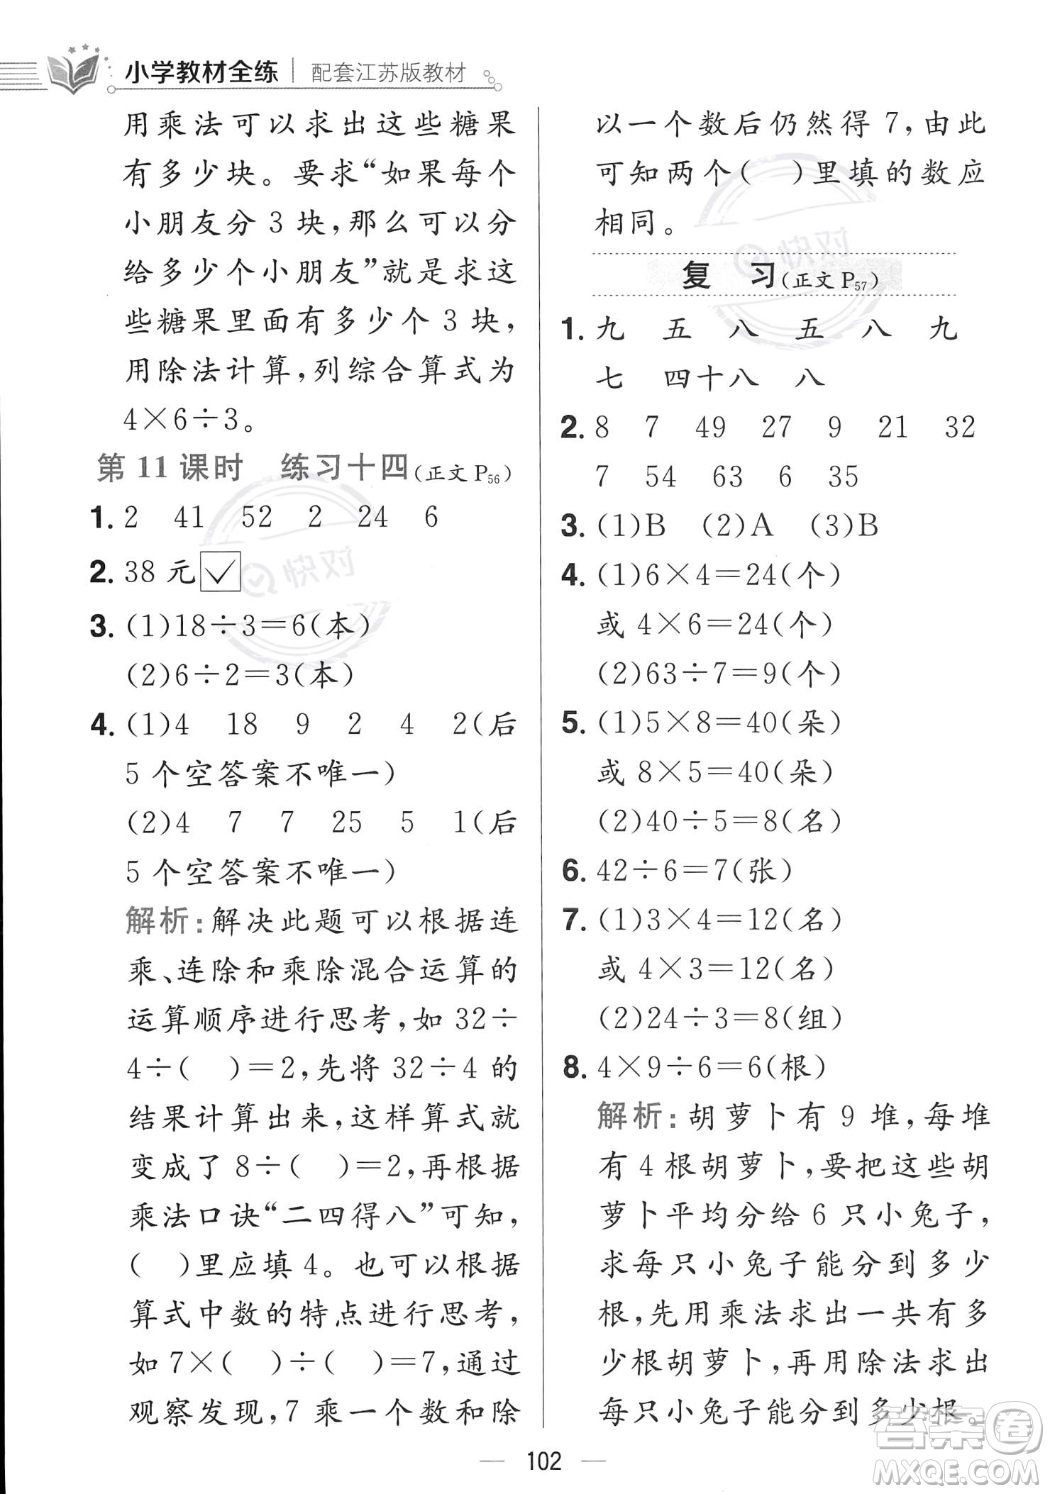 小学教材全练 配套江苏版教材
用乘法可以求出这些糖果
有多少块。要求“如果每个
小朋友分 3 块,那么可以分
给多少个小朋友”就是求这
些糖果里面有多少个 3 块,
用除法计算,列综合算式为
4×6÷3。
第 11 课时 练习十四(正文 P56)
1. 2 41 52 2 24 6
2. 38 元 ✓
3. (1)18÷3=6(本)
(2)6÷2=3(本)
4. (1)4 18 9 2 4 2(后
5 个空答案不唯一)
(2)4 7 7 25 5 1(后
5 个空答案不唯一)
解析:解决此题可以根据连
乘、连除和乘除混合运算的
运算顺序进行思考,如 32÷
4÷( )=2,先将 32÷4 的
结果计算出来,这样算式就
变成了 8÷( )=2,再根据
乘法口诀“二四得八”可知,
( )里应填 4。也可以根据
算式中数的特点进行思考,
如 7×( )÷( )=7,通过
观察发现,7 乘一个数和除
以一个数后仍然得 7,由此
可知两个( )里填的数应
相同。
复 习(正文 P57)
1. 九 五 八 五 八 九
七 四十八 八
2. 8 7 49 27 9 21 32
7 54 6 8 6 35
3. (1)B (2)A (3)B
4. (1)6×4=24(个)
或 4×6=24(个)
(2)63÷7=9(个)
5. (1)5×8=40(朵)
或 8×5=40(朵)
(2)40÷5=8(名)
6. 42÷6=7(张)
7. (1)3×4=12(名)
或 4×3=12(名)
(2)24÷3=8(组)
8. 4×9÷6=6(根)
解析:胡萝卜有 9 堆,每堆
有 4 根胡萝卜,要把这些胡
萝卜平均分给 6 只小兔子,
求每只小兔子能分到多少
根,先用乘法求出一共有多
少根胡萝卜,再用除法求出
每只小兔子能分到多少根。
102
快对
快对
答案卷
MXQE.COM